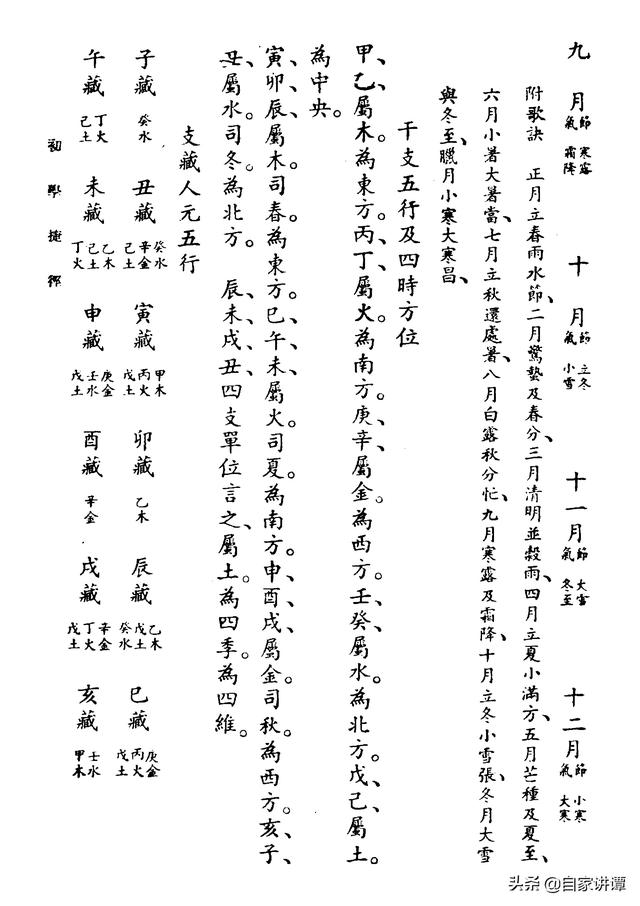 九月 節寒露 氣霜降 十月 節立冬 氣小雪 十一月 節大雪 氣冬至 十二月 節小寒 氣大寒
附歌訣 正月立春雨水節、二月驚蟄及春分、三月清明並穀雨、四月立夏小滿方、五月芒種及夏至、
六月小暑大暑當、七月立秋還處暑、八月白露秋分忙、九月寒露及霜降、十月立冬小雪張、冬月大雪
與冬至、臘月小寒大寒昌、
干支五行及四時方位
甲、乙、屬木。為東方。丙、丁、屬火。為南方。庚、辛、屬金。為西方。壬、癸、屬水。為北方。戊、己、屬土。
為中央。
寅、卯、辰、屬木。司春。為東方。巳、午、未、屬火。司夏。為南方。申、酉、戌、屬金。司秋。為西方。亥、子、
丑、屬水。司冬。為北方。 辰、未、戌、丑、四支單位言之、屬土。為四季。為四維。
支藏人元五行
子藏 癸水 丑藏 癸水 辛金 己土 寅藏 甲木 丙火 戊土 卯藏 乙木 辰藏 乙木 戊土 癸水 巳藏 庚金 丙火 戊土
午藏 丁火 己土 未藏 乙木 己土 丁火 申藏 庚金 壬水 戊土 酉藏 辛金 戌藏 辛金 丁火 戊土 亥藏 壬水 甲木
初學捷徑
头条 @自家讲谭